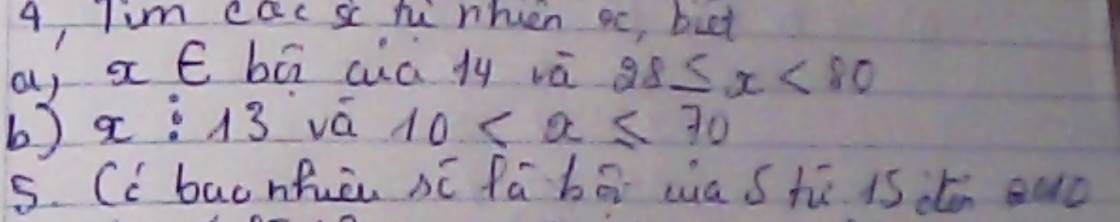 4, Tìm các số tự nhiên x, biết
a, x ∈ bội của 14 và 28 ≤ x < 80
b) x ⋮ 13 và 10 < x ≤ 70
5. Có bao nhiêu số là bội của 5 từ 15 đến